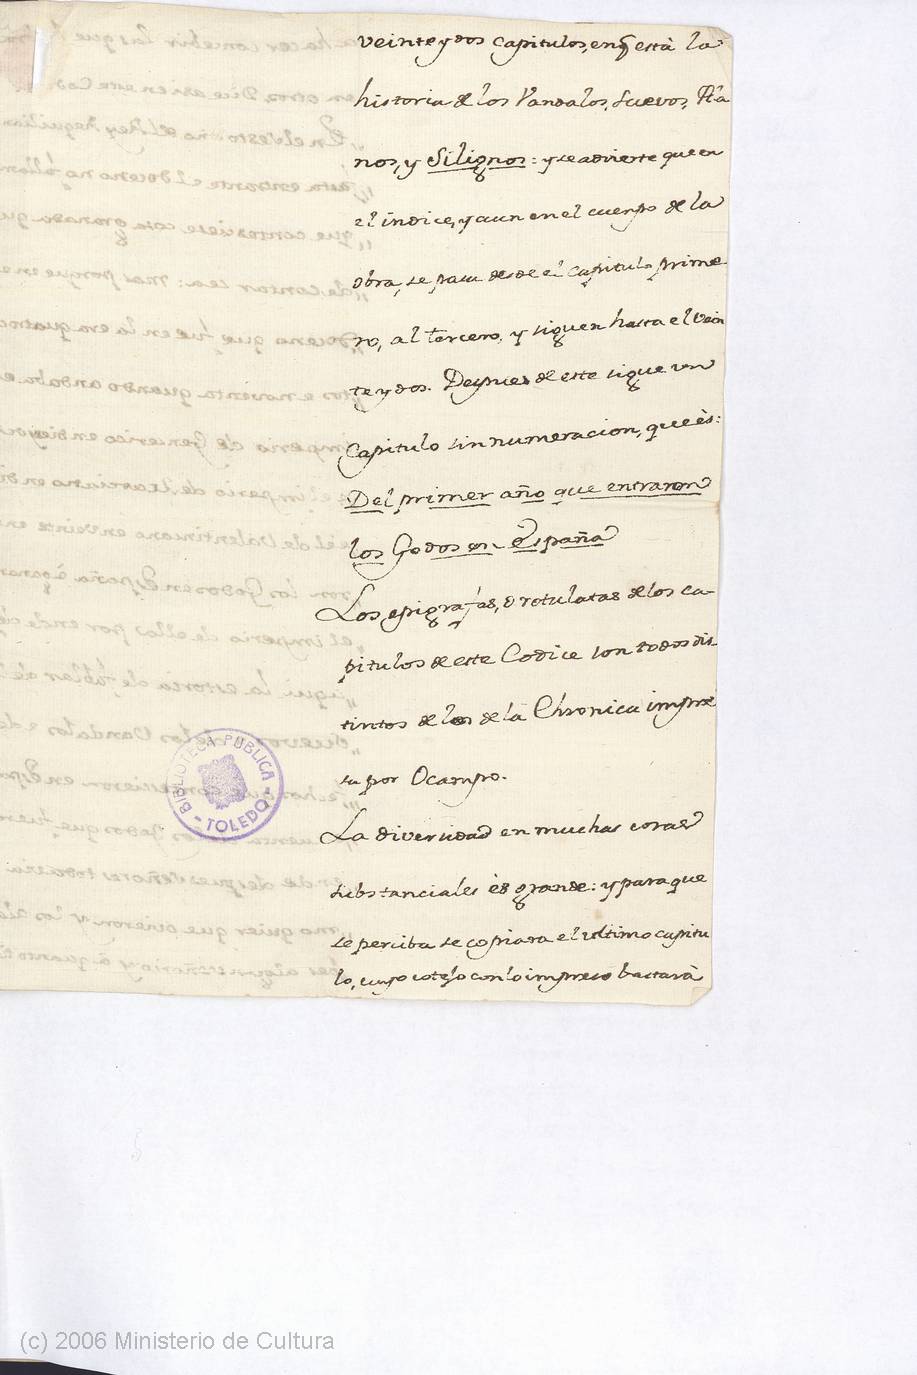 veinte y dos capitulos, en q̃ està la
historia de los Vandalos, Suevos, Ala
nos, y Silignos: y se advierte que en
el índice, y aun en el cuerpo de la
obra, se pasa desde el capitulo prime
ro, al tercero, y siguen hasta el vein
te y dos. Despues de este sigue un
Capitulo sin numeracion, que ès:
Del primer año que entraron
los Godos en España
Los epigrafas, o rotulatas de los ca-
pitulos de este Codice son todos dis
tintos de los de la Chronica impre
sa por Ocampo.
La diversidad en muchas cosas
substanciales ès grande: y para que
se perciba se copiara el ultimo capitu
lo, cuyo cotejo con lo impreso bastarà
BIBLIOTECA PUBLICA
- TOLEDO -
(c) 2006 Ministerio de Cultura